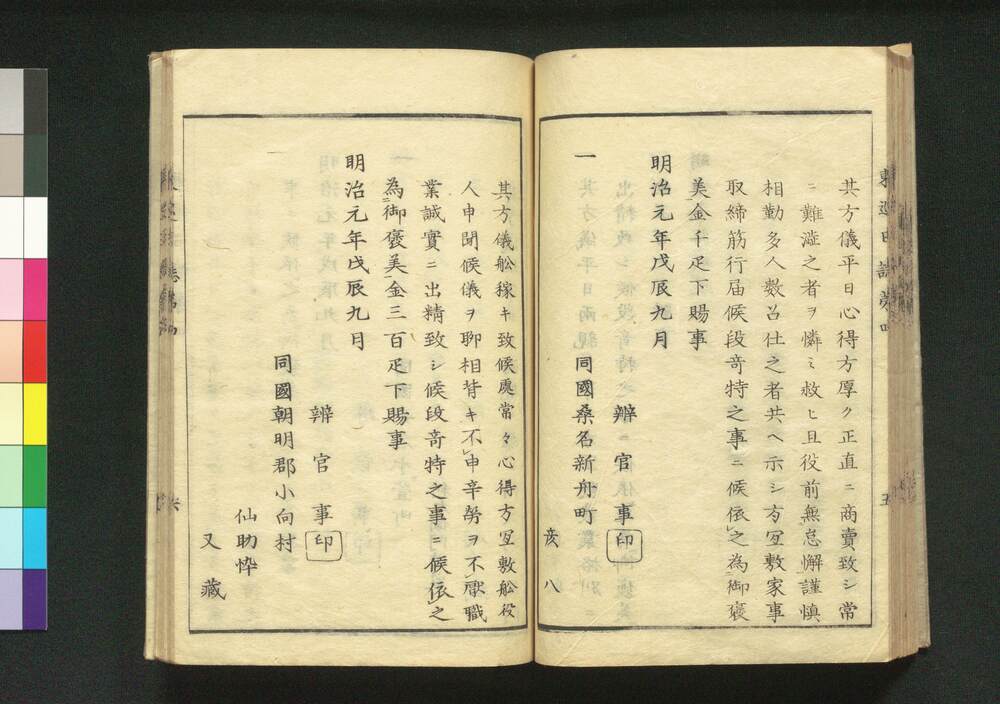 其方儀平日心得方厚ク正直ニ商賣致シ常
ニ難澁之者ヲ憐ミ救ヒ且役前無怠懈謹慎
相勤多人數召仕之者共ヘ示シ方宜敷家事
取締筋行届候段竒特之事ニ候依之為御褒
美金千疋下賜事
明治元年戊辰九月
辨官事 印
一 同國桑名新舟町
亥八
其方儀舩稼キ致候處常々心得方宜敷舩役
人申聞候儀ヲ聊相背キ不申辛勞ヲ不厭職
業誠實ニ出精致シ候段竒特之事ニ候依之
為御褒美金三百疋下賜事
明治元年戊辰九月
辨官事 印
一 同國朝明郡小向村
仙助悴
又藏
五
六